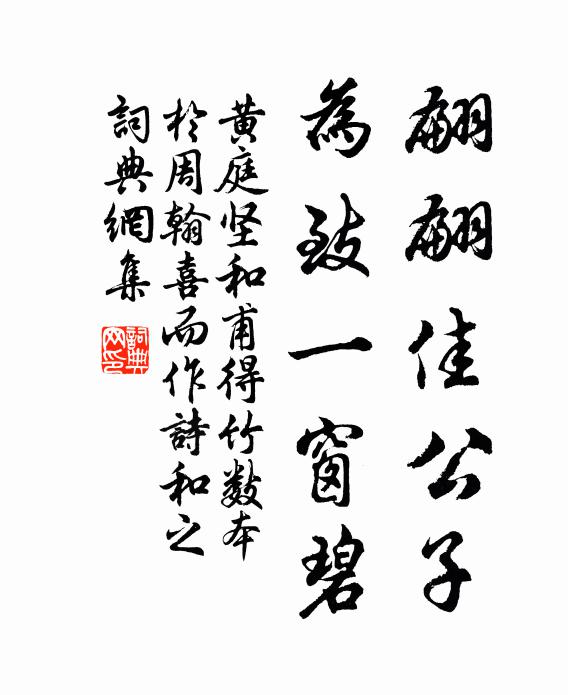 翩翩佳公子
為致一窗碧
黄庭坚和甫得竹数本
於周翰喜而作詩和之
詞典網集
詞典网印